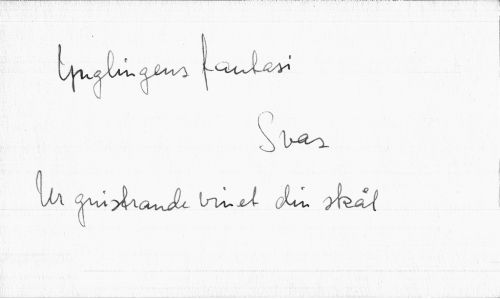 Ynglingens fantasi
Svar
Ur gnistrande vinet din skål